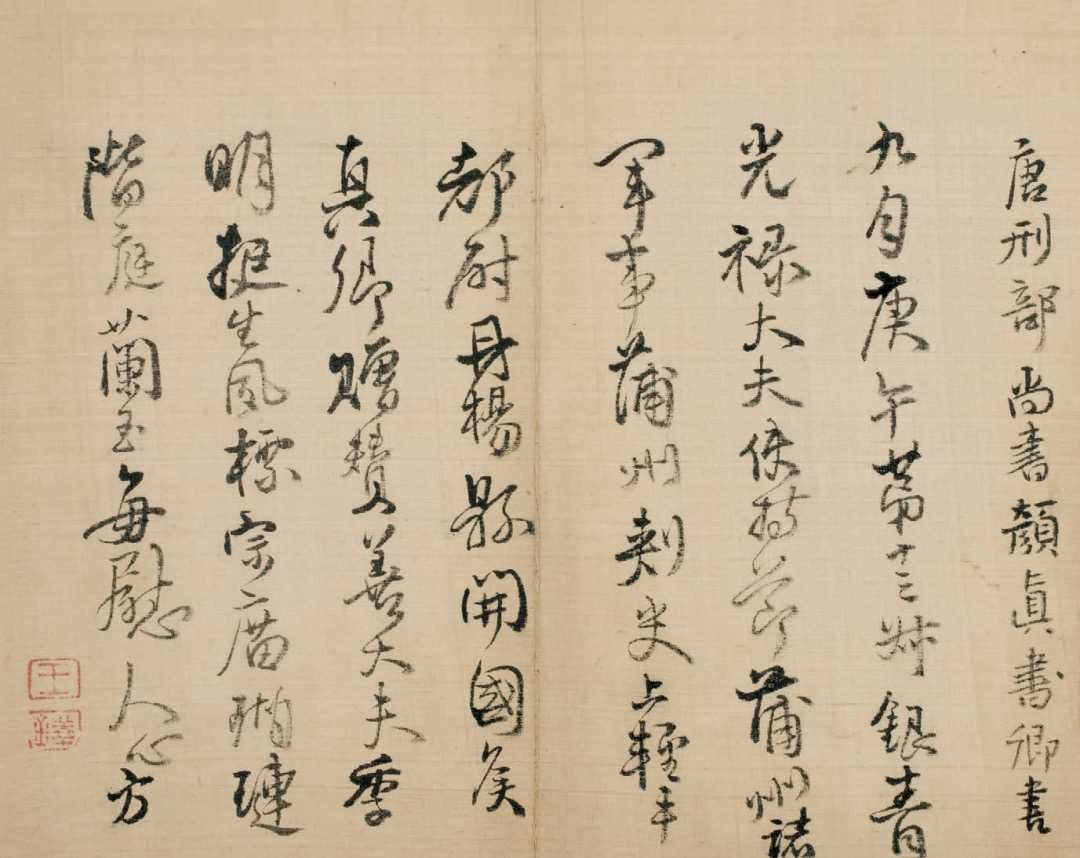 唐刑部尚書顏眞書卿書
九月庚午苐十三叔銀青
光祿大夫使持節蒲州諸
軍事蒲州刺史上輕車
都尉丹楊縣開國侯
真卿贈贊善大夫季
明挺生風標宗廟瑚璉
階庭蘭玉每慰人心方
王
鐸